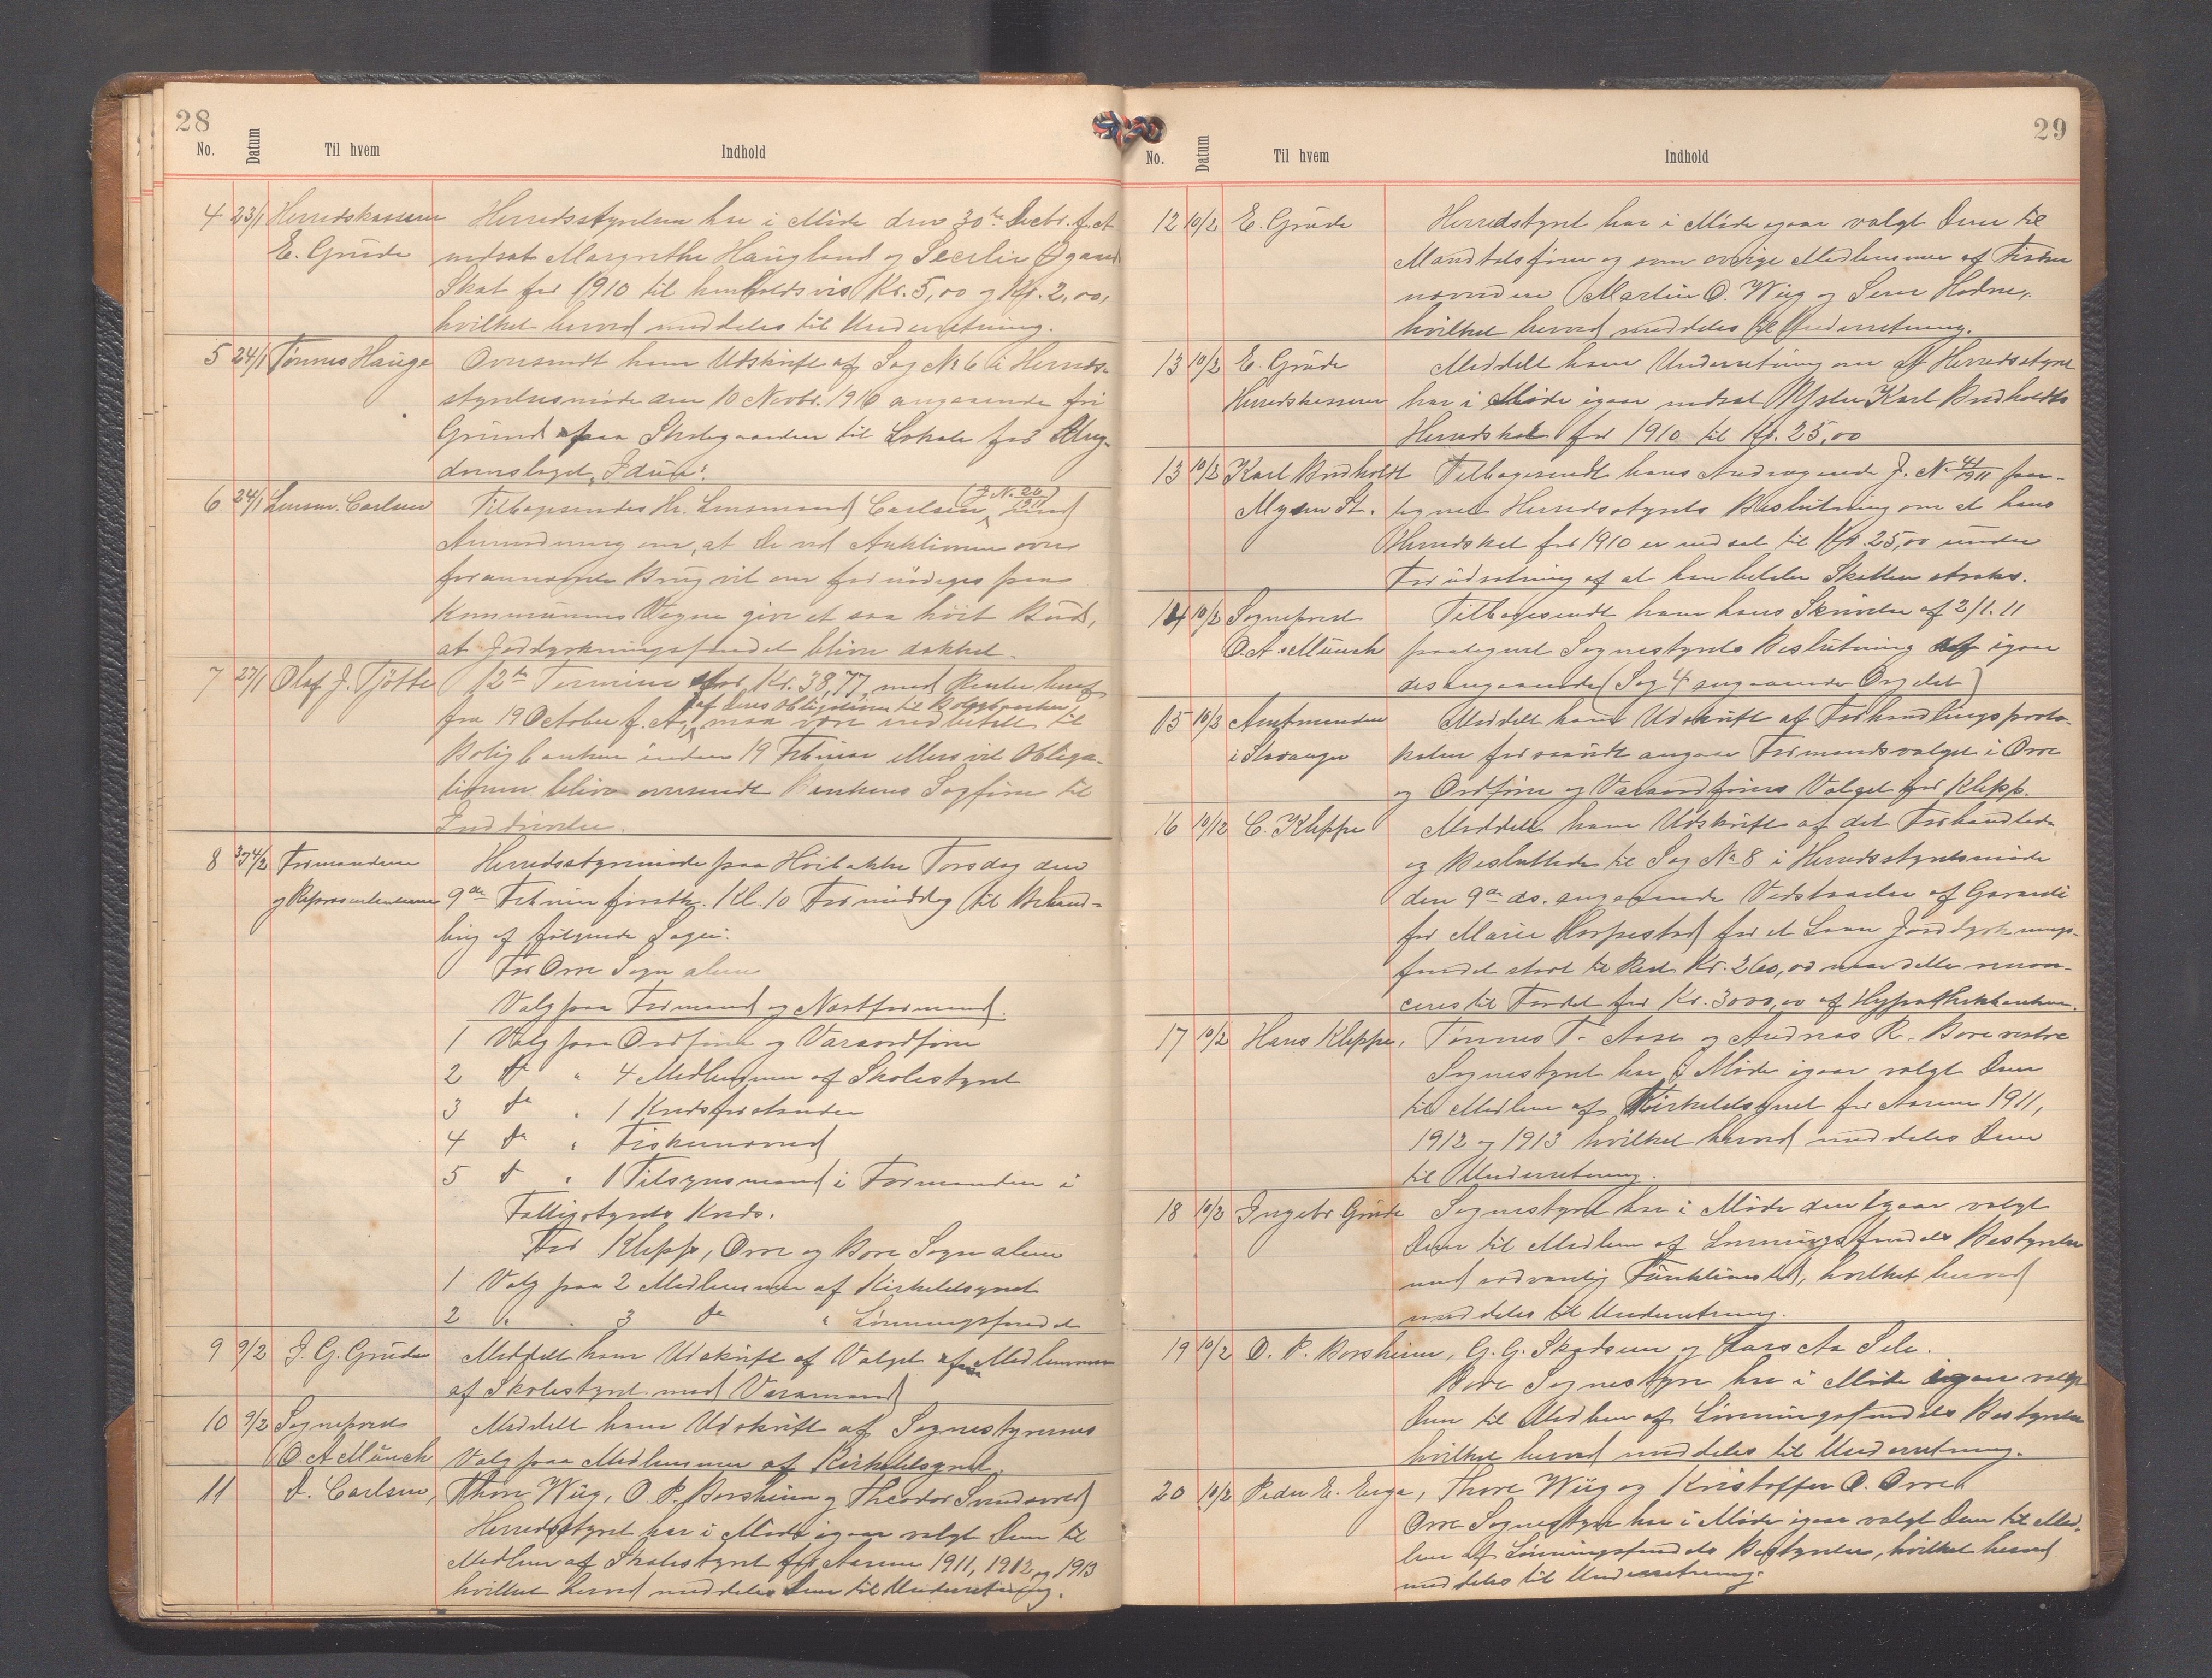 28
No. Datum Til hvem Indhold
4 23/1 Herredskasserer Herredsstyrelsen har i Møde den 30te Decbr. f. A.
E. Grude nedsat Margrethe Haugland og Secelie Øgaard
Skat for 1910 til henholdsvis Kr. 5,00 og Kr. 2,00,
hvilket herved meddeles til Underretning.
5 24/1 Tønnes Hauge Oversendt ham Udskrift af Sag No 6 i Herreds-
styrelsesmøde den 10 Novbr. 1910 angaaende fri
Grund paa Skolegaarden til Lokale for Ung-
domslaget „Idun".
6 24/1 Lensm. Carlsen Tilbagesendes Hr. Lensmand Carlsen (J. No 26/1911) med
Anmodning om, at De ved Auktionen over
forannævnte Brug vil om fornødiges paa
Kommunens Vegne give et saa høit Bud,
at Jorddyrkningsfondet bliver dækket.
7 27/1 Olaf J. Tjøtta 12te Termin stor Kr. 38,77 med Renter heraf
af Deres Obligation til Boligbanken
fra 19 October f. A., maa være indbetalt til
Boligbanken inden 19 Februar ellers vil Obliga-
tionen blive oversendt Bankens Sagfører til
Inddrivelse.
8 4/2 Formændene Herredsstyremøde paa Hvibakke Torsdag den
og Repræsentanterne 9de Februar førstk. Kl. 10 Formiddag til Behand-
ling af følgende Sager:
For Orre Sogn alene
Valg paa Formand og Næstformand.
1 Valg paa Ordfører og Varaordfører
2 do " 4 Medlemmer af Skolestyret
3 do " 1 Kredsforstander
4 do " Fiskenævnd
5 do " 1 Tilsynsmand i Formanden i
Fattigstyrets Kreds.
For Klepp, Orre og Bore Sogn alene
1 Valg paa 2 Medlemmer af Kirketilsynet
2 " " 3 do " Lønningsfondet
9 9/2 J. G. Grude Meddelt ham Udskrift af Valget af Medlemmer
af Skolestyret med Varamænd
10 9/2 Sogneprest Meddelt ham Udskrift af Sognestyrernes
O. A. Münch Valg paa Medlemmer af Kirketilsynet.
11 D. Carlsen, Thore Wiig, O. P. Borsheim og Theodor
Herredsstyret har i Møde igaar valgt Dem til
Medlem af Skolestyret for Aarene 1911, 1912 og 1913
hvilket herved meddeles Dem til Underretning.
29
No. Datum Til hvem Indhold
12 10/2 E. Grude Herredstyret har i Møde igaar valgt Dem til
Mandtalsfører og som øvrige Medlemmer af Fisker
nævnden Martin O. Wiig og Sem Hodne,
hvilket herved meddeles til Underretning.
13 10/2 E. Grude Meddelt ham Underretning om at Herredsstyret
Herredskasserer har i Møde igaar nedsat Karl Budholdts
Herredskat for 1910 til Kr. 25,00
13 10/2 Karl Budholdt Tilbagesendt hans Andragende J. No 41/1911 paa-
Mysen St. tegnet Herredsstyrets Beslutning om at hans
Herredskat for 1910 er nedsat til Kr. 25,00 under
Forudsætning af at han betaler Skatten straks.
14 10/2 Sogneprest Tilbagesendt ham hans Skrivelse af 2/1.11
O. A. Münch paategnet Sognestyrets Beslutning af igaar
desangaaende (Sag 4 angaaende Orgelet)
15 10/3 Amtmanden Meddelt ham Udskrift af Forhandlingsproto-
i Stavanger kolen forsaavidt angaar Formandsvalget i Orre
og Ordfører og Varaordførers Valget for Klepp.
16 10/12 C. Kleppe Meddelt ham Udskrift af det Forhandlede
og Besluttede til Sag No 8 i Herredsstyrelsesmøde
den 9de ds. angaaende Vedstaaelse af Garanti
for Marie Horpestad for et Laan Jorddyrknings-
fondet stort til Rest Kr. 260,00 naar dette renon-
ceres til Fordel for Kr. 3000,00 af Hypothekbanken.
17 10/2 Hans Kleppe, Tønnes T. Aase og Andreas R. Bore vestre
Sognestyret har i Møde igaar valgt Dem
til Medlem af Kirketilsynet for Aarene 1911,
1912 og 1913 hvilket herved meddeles Dem
til Underretning.
18 10/2 Ingebr Grude Sognestyret har i Møde den igaar valgt
Dem til Medlem af Lønningsfondets Bestyrelse
med sedvanlig Funktionstid, hvilket herved
meddeles til Underretning.
19 10/2 O. P. Borsheim, G. G. Skadsem og Lars Aa Sele.
Bore Sognestyre har i Møde igaar valgt
Dem til Medlem af Lønningsfondets Bestyrelse
hvilket herved meddeles til Underretning.
20 10/2 Peder E. Erga, Thore Wiig og Kristoffer O. Orre
Orre Sognestyre har i Møde igaar valgt Dem til Med-
lem af Lønningsfondets Bestyrelse, hvilket herved
meddeles til Underretning.